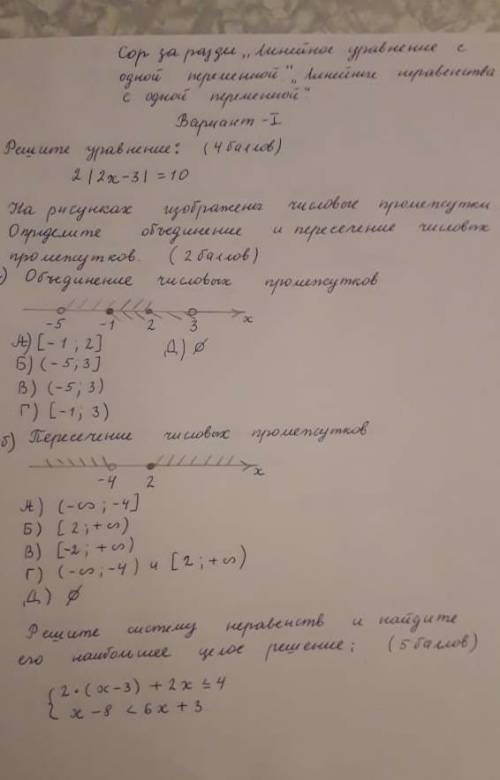 Сор за разди „Линейное уравнение с
одной переменной", „Линейные неравенства
с одной переменной"
Вариант-I
Решите уравнение: (4 баллов)
2|2x-3| = 10
На рисунках изображены числовые промежутки.
Определите объединение и пересечение числовых
промежутков. (2 баллов)
) Объединение числовых промежутков
-5 -1 2 3 x
А) [-1; 2] Д) ∅
Б) (-5; 3]
В) (-5; 3)
Г) [-1; 3)
б) Пересечение числовых промежутков
-4 2 x
А) (-∞; -4]
Б) [2; +∞)
В) [-2; +∞)
Г) (-∞; -4) и [2; +∞)
Д) ∅
Решите систему неравенств и найдите
его наибольшее целое решение; (5 баллов)
{ 2·(x-3) + 2x ≤ 4
x - 8 < 6x + 3